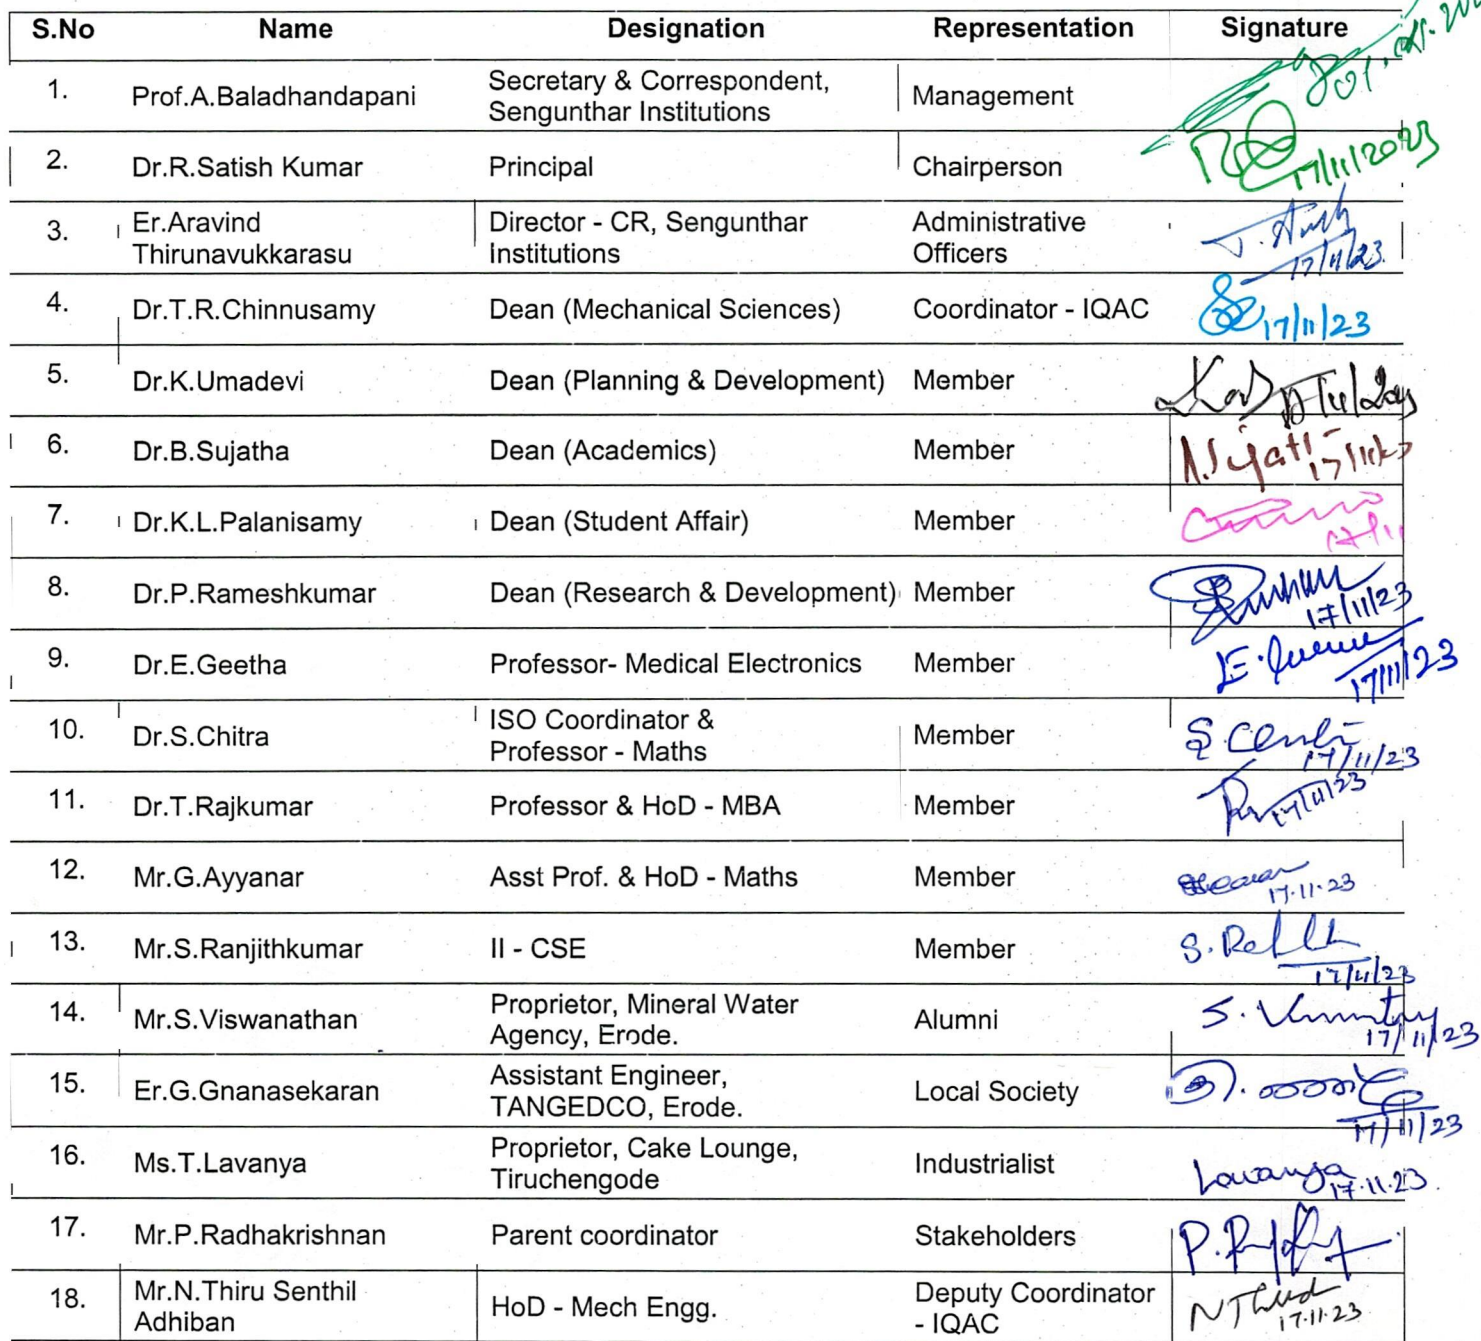 S.No Name Designation Representation Signature
1. Prof.A.Baladhandapani Secretary & Correspondent, Management
Sengunthar Institutions
2. Dr.R.Satish Kumar Principal Chairperson 17/11/2023
3. Er.Aravind Director - CR, Sengunthar Administrative
Thirunavukkarasu Institutions Officers 17/11/23
4. Dr.T.R.Chinnusamy Dean (Mechanical Sciences) Coordinator - IQAC 17/11/23
5. Dr.K.Umadevi Dean (Planning & Development) Member
6. Dr.B.Sujatha Dean (Academics) Member
7. Dr.K.L.Palanisamy Dean (Student Affair) Member 17/11
8. Dr.P.Rameshkumar Dean (Research & Development) Member 17/11/23
9. Dr.E.Geetha Professor- Medical Electronics Member 17/11/23
10. Dr.S.Chitra ISO Coordinator & Member
Professor - Maths 17/11/23
11. Dr.T.Rajkumar Professor & HoD - MBA Member 17/11/23
12. Mr.G.Ayyanar Asst Prof. & HoD - Maths Member 17.11.23
13. Mr.S.Ranjithkumar II - CSE Member 17/11/23
14. Mr.S.Viswanathan Proprietor, Mineral Water Alumni
Agency, Erode. 17/11/23
15. Er.G.Gnanasekaran Assistant Engineer, Local Society
TANGEDCO, Erode. 17/11/23
16. Ms.T.Lavanya Proprietor, Cake Lounge, Industrialist Lavanya
Tiruchengode 17.11.23
17. Mr.P.Radhakrishnan Parent coordinator Stakeholders
18. Mr.N.Thiru Senthil HoD - Mech Engg. Deputy Coordinator
Adhiban - IQAC 17.11.23